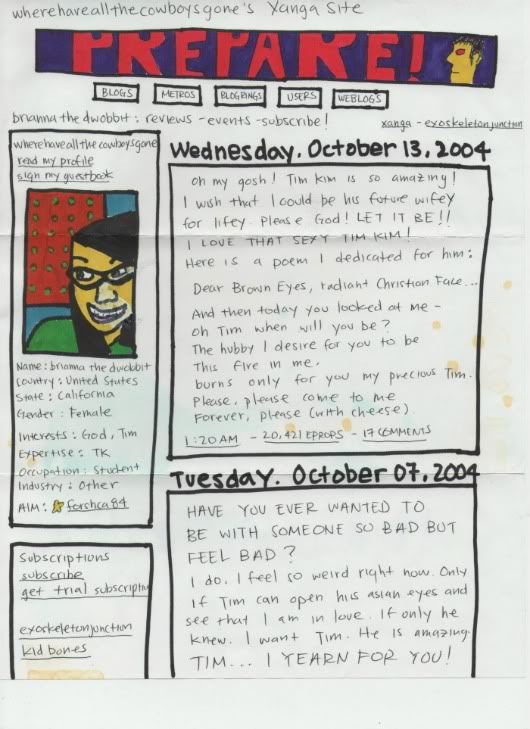 wherehaveallthecowboysgone's Xanga Site
PREPARE!
BLOGS METROS BLOGRINGS USERS WEBLOGS
brianna the dwobbit : reviews - events - subscribe!
xanga - exoskeletonjunction
wherehaveallthecowboysgone
read my profile
sign my guestbook
Name : brianna the dwobbit
Country : United States
State : California
Gender : Female
Interests : God, Tim
Expertise : TK
Occupation : Student
Industry : Other
AIM : forshca84
Subscriptions
subscribe
get trial subscriptio
exoskeletonjunction
kid bones
Wednesday. October 13, 2004
oh my gosh! Tim Kim is so amazing!
I wish that I could be his future wifey
for lifey. Please God! LET IT BE!!
I LOVE THAT SEXY TIM KIM!
Here is a poem I dedicated for him:
Dear Brown Eyes, radiant Christian Face...
And then today you looked at me -
oh Tim when will you be?
The hubby I desire for you to be
This fire in me.
burns only for you my precious Tim.
Please, please come to me
Forever, please (with cheese)
1:20 AM - 20,421 EPROPS - 17 COMMENTS
Tuesday. October 07, 2004
HAVE YOU EVER WANTED TO
BE WITH SOMEONE SO BAD BUT
FEEL BAD?
I do. I feel so weird right now. Only
if Tim can open his asian eyes and
see that I am in love. If only he
knew. I want Tim. He is amazing.
TIM... I YEARN FOR YOU!